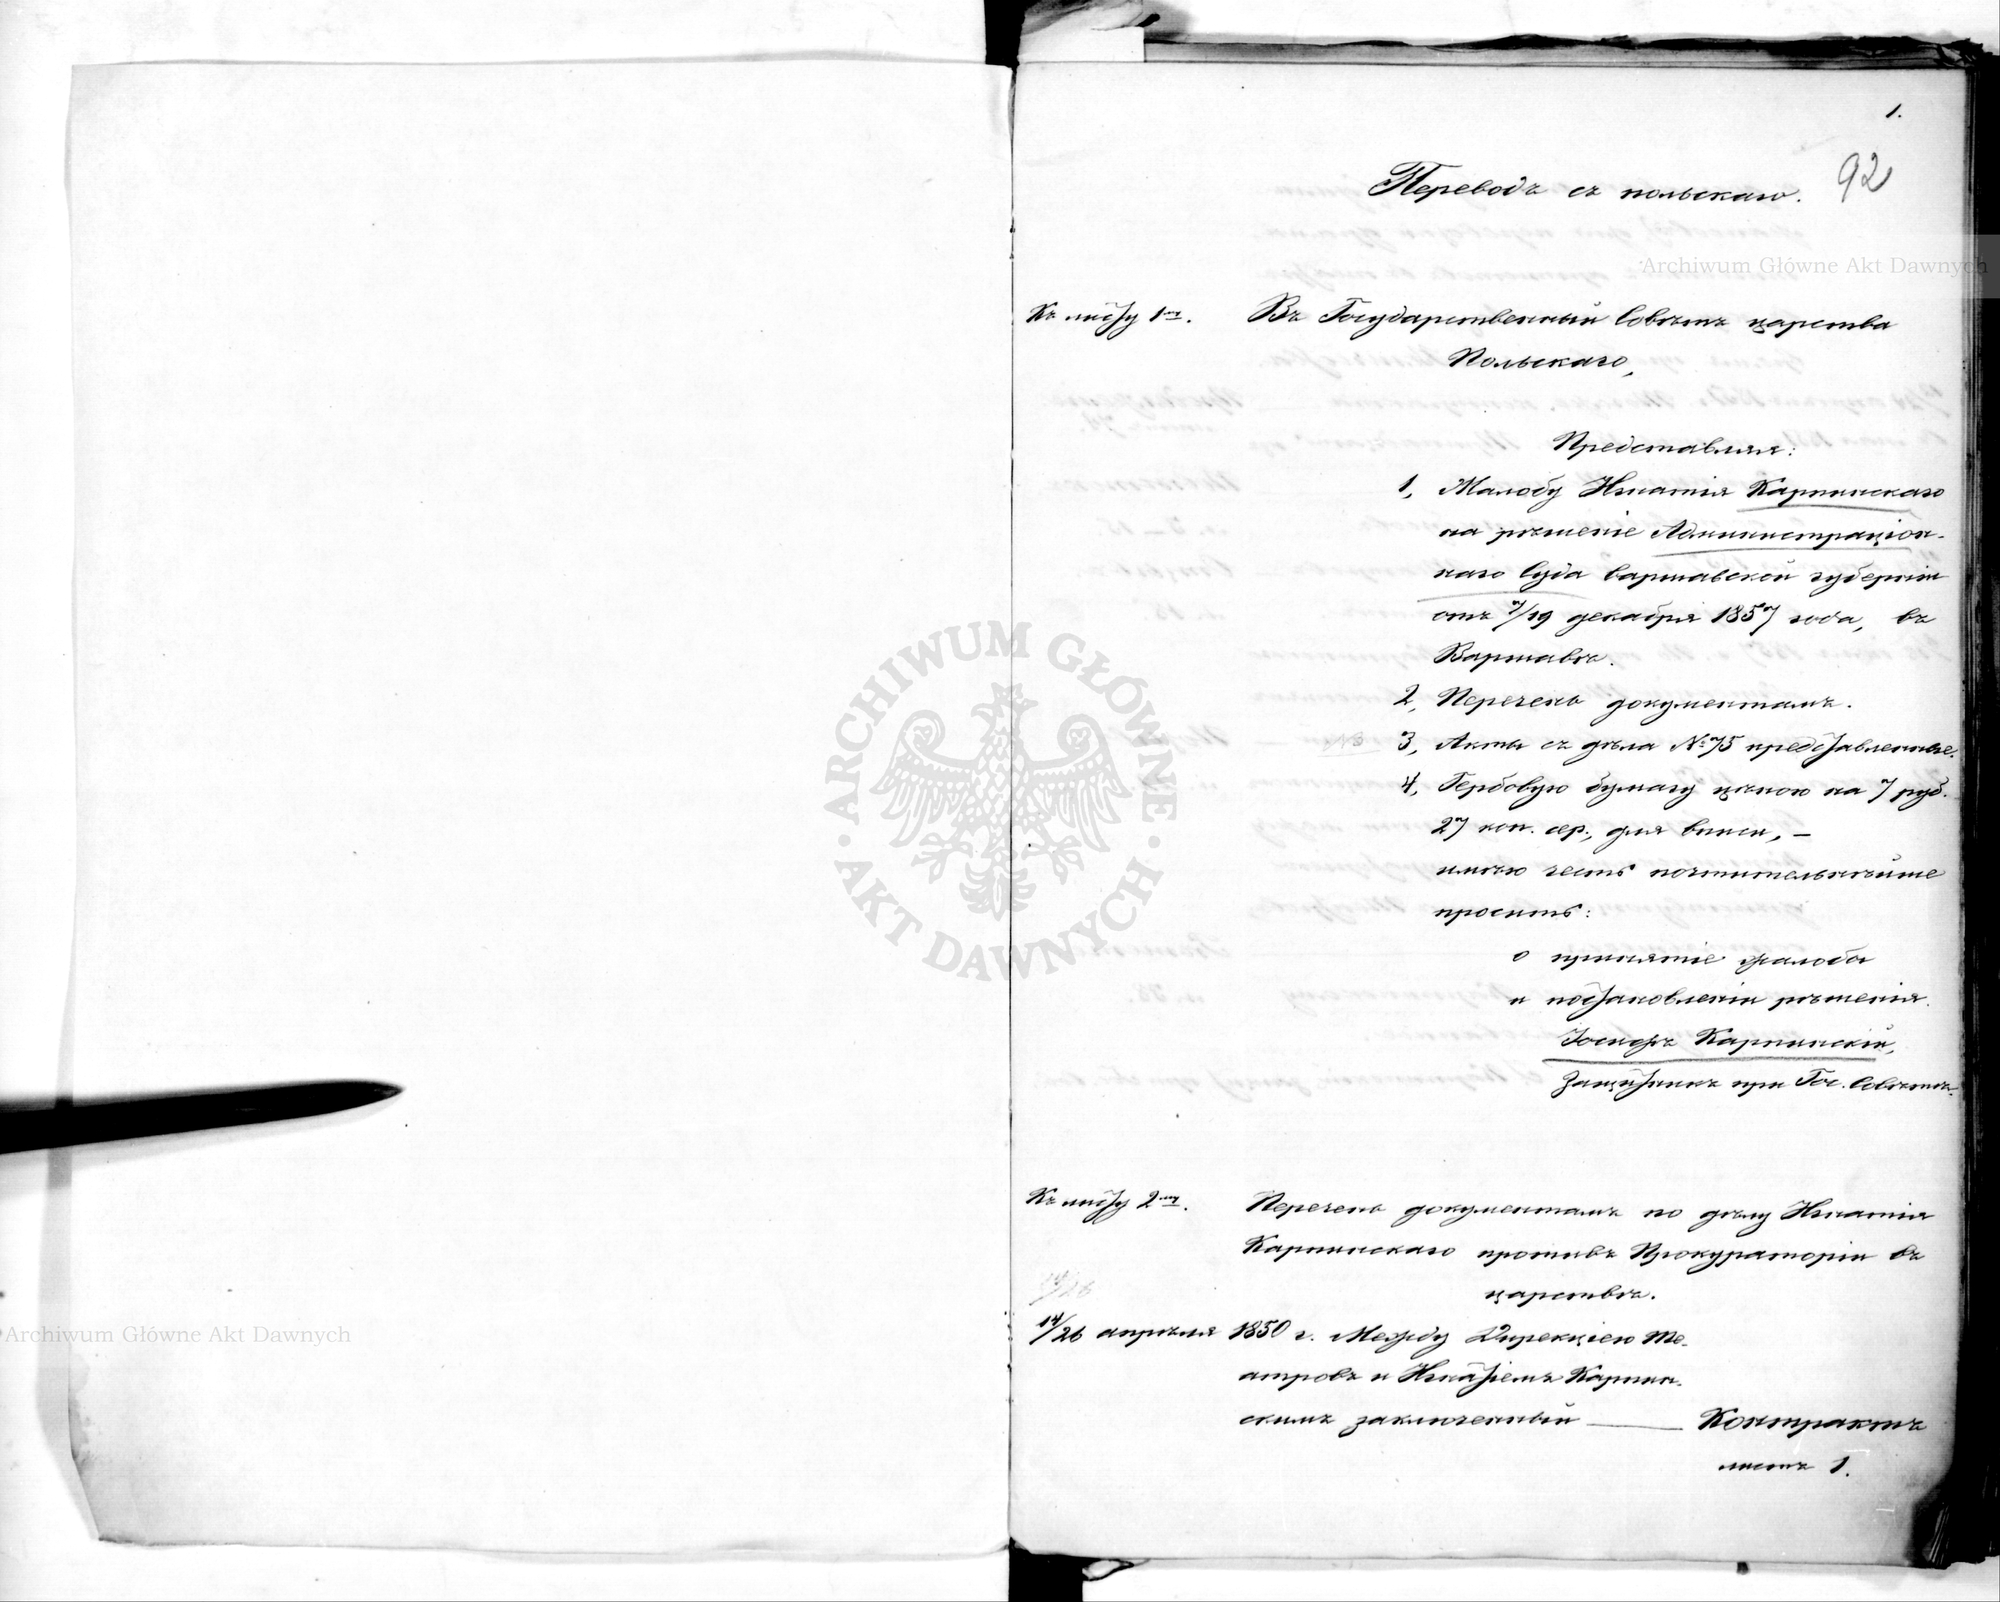 1.
92
Переводъ съ польскаго.
Archiwum Główne Akt Dawnych
Къ листу 1му.
Въ Государственный Совѣтъ царства
Польскаго,
Представляя:
1, Жалобу Игнатія Карпинскаго
на рѣшеніе Администраціон-
наго Суда варшавской губерніи
отъ 7/19 декабря 1857 года, въ
Варшавѣ.
2, Перечень документамъ.
3, Акты съ дѣла № 75 представленные.
4, Гербовую бумагу цѣною на 7 руб.
27 коп. сер., для вписи, —
имѣю честь почтительнѣйше
просить:
о принятіе жалобы
и постановленіи рѣшенія.
Іосифъ Карпинскій,
Защитникъ при Гос. Совѣтѣ.
ARCHIWUM GŁÓWNE
AKT DAWNYCH
Къ листу 2му.
Перечень документамъ по дѣлу Игнатія
Карпинскаго противъ Прокураторіи въ
царствѣ.
14/26
14/26 апрѣля 1850 г. Между Дирекціею те-
атровъ и Игнатіемъ Карпин-
скимъ заключенный — Контрактъ
листъ 1.
Archiwum Główne Akt Dawnych